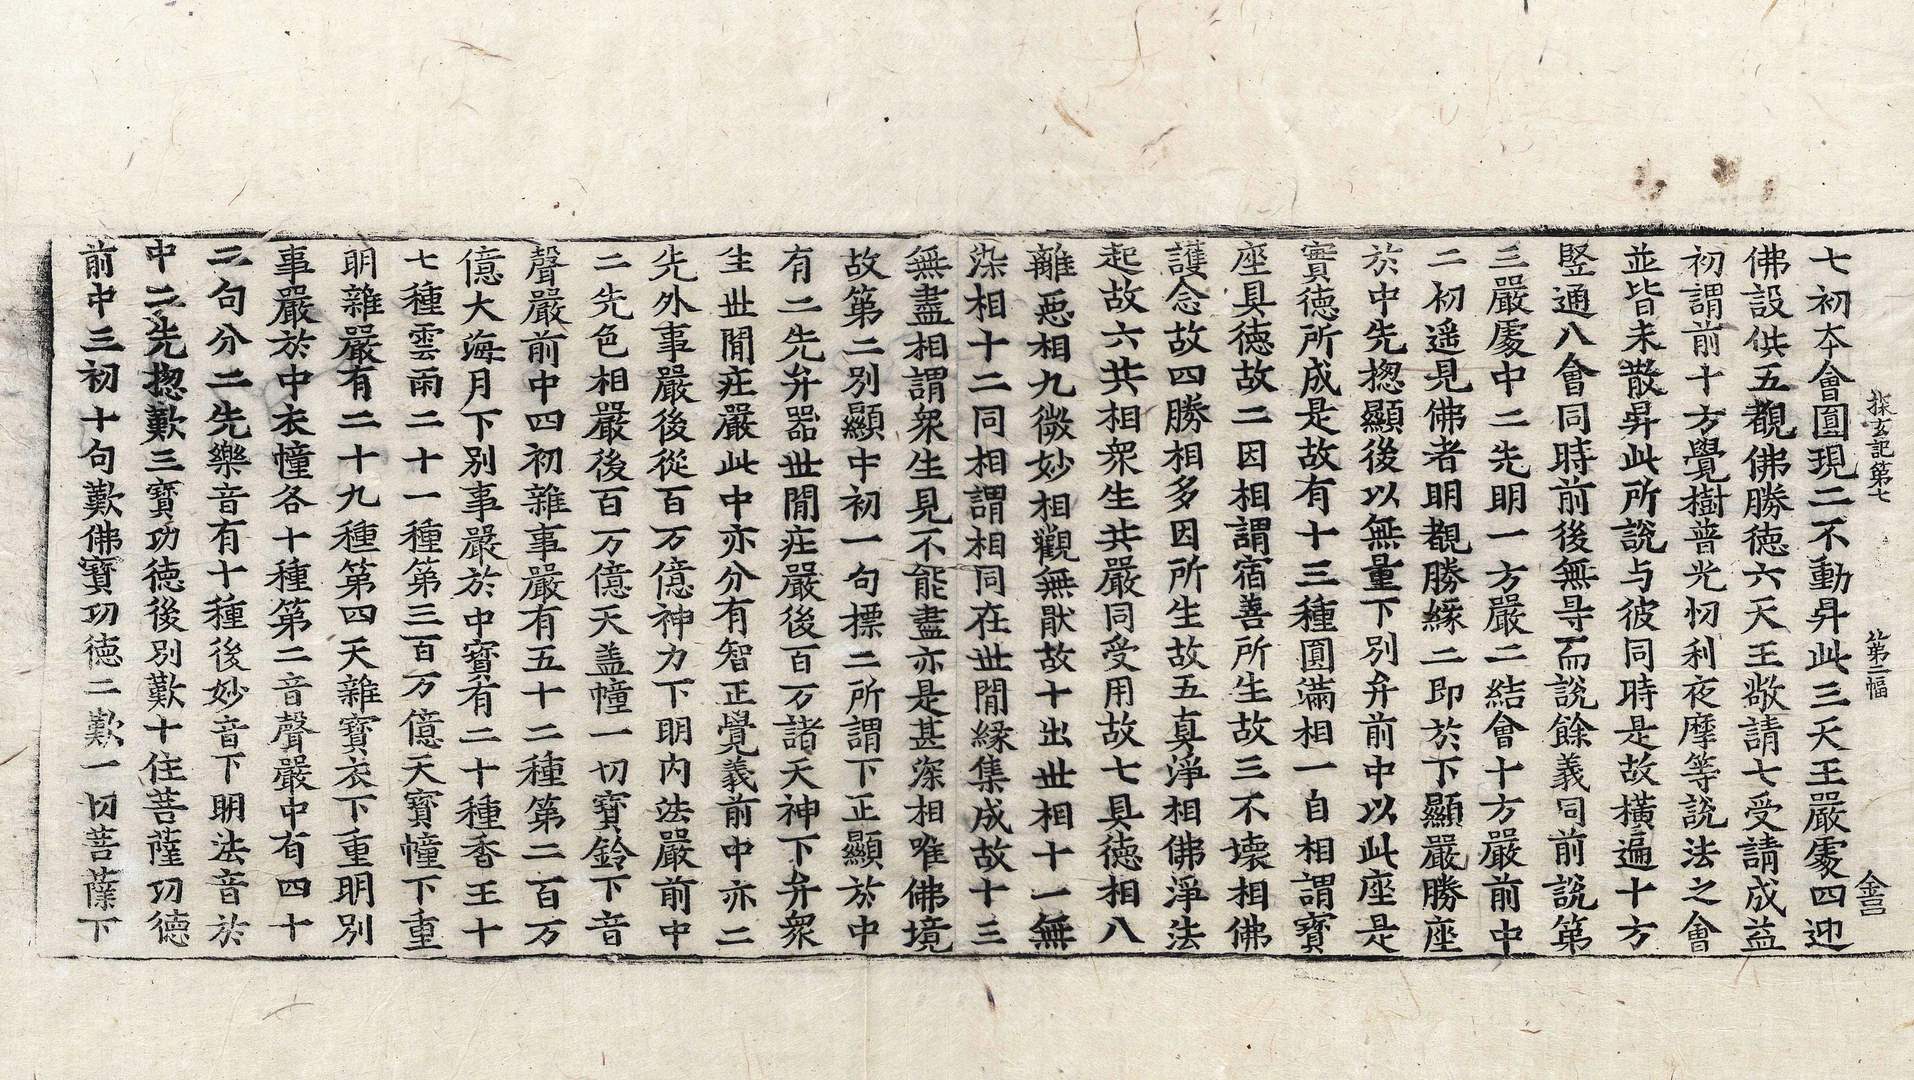 探玄記第七 第二幅 金言
七初本會圓現二不動昇此三天王嚴處四迎
佛設供五覩佛勝德六天王敬請七受請成益
初謂前十方覺樹普光忉利夜摩等說法之會
並皆未散昇此所說与彼同時是故橫遍十方
竪通八會同時前後無㝵而說餘義同前說第
三嚴處中二先明一方嚴二結會十方嚴前中
二初遥見佛者明覩勝緣二即於下顯嚴勝座
於中先揔顯後以無量下別弁前中以此座是
寶德所成是故有十三種圓滿相一自相謂寶
座具德故二因相謂宿善所生故三不壞相佛
護念故四勝相多因所生故五真淨相佛淨法
起故六共相衆生共嚴同受用故七具德相八
離惡相九微妙相觀無猒故十出丗相十一無
染相十二同相謂相同在丗閒緣集成故十三
無盡相謂衆生見不能盡亦是甚深相唯佛境
故第二別顯中初一句摽二所謂下正顯於中
有二先弁器丗閒莊嚴後百万諸天神下弁衆
生丗閒莊嚴此中亦分有智正覺義前中亦二
先外事嚴後從百万億神力下明內法嚴前中
二先色相嚴後百万億天盖幢一切寶鈴下音
聲嚴前中四初雜事嚴有五十二種第二百万
億大海月下別事嚴於中寶有二十種香王十
七種雲雨二十一種第三百万億天寶幢下重
明雜嚴有二十九種第四天雜寶衣下重明別
事嚴於中衣幢各十種第二音聲嚴中有四十
二句分二先樂音有十種後妙音下明法音於
中二先揔歎三寶功德後別歎十住菩薩功德
前中三初十句歎佛寶功德二歎一切菩薩下